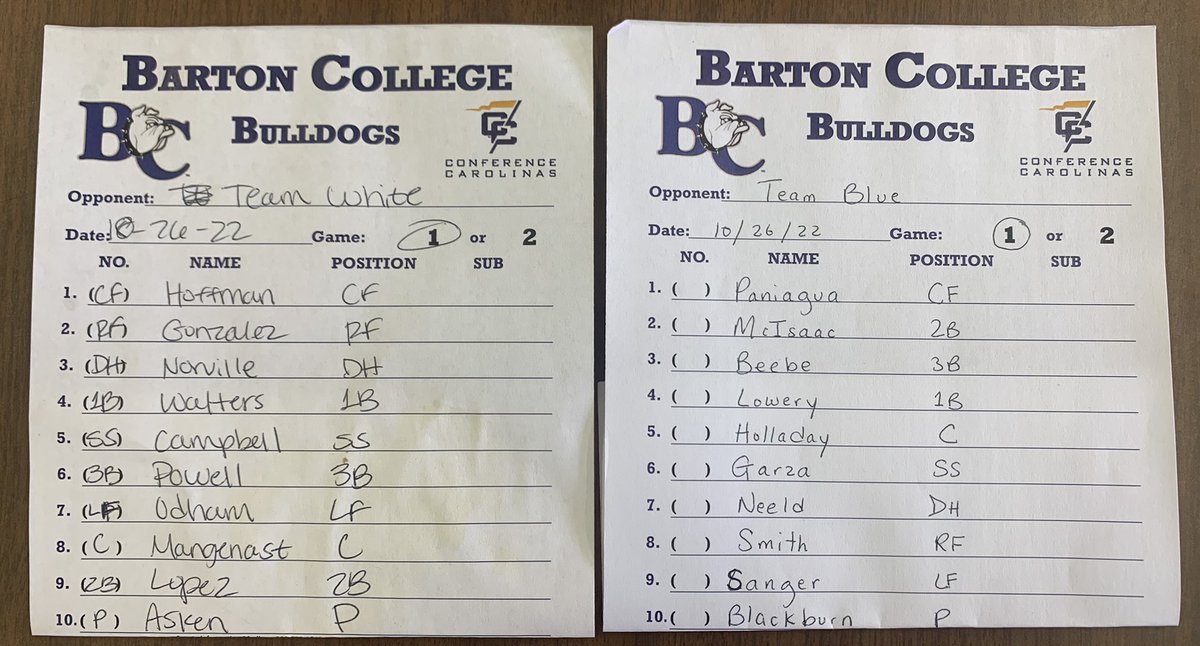 BARTON COLLEGE
BC BULLDOGS
CONFERENCE
CAROLINAS
Opponent: Team White
Date: 10-26-22 Game: 1 or 2
NO. NAME POSITION SUB
1. (CF) Hoffman CF
2. (RF) Gonzalez RF
3. (DH) Norville DH
4. (1B) Watters 1B
5. (SS) Campbell SS
6. (3B) Powell 3B
7. (LF) Odham LF
8. (C) Mangenast C
9. (2B) Lopez 2B
10. (P) Asken P
BARTON COLLEGE
BC BULLDOGS
CONFERENCE
CAROLINAS
Opponent: Team Blue
Date: 10/26/22 Game: 1 or 2
NO. NAME POSITION SUB
1. ( ) Paniagua CF
2. ( ) McIsaac 2B
3. ( ) Beebe 3B
4. ( ) Lowery 1B
5. ( ) Holladay C
6. ( ) Garza SS
7. ( ) Neeld DH
8. ( ) Smith RF
9. ( ) Sanger LF
10. ( ) Blackburn P